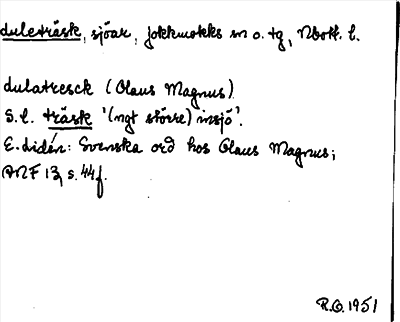 duleträsk, sjöar, Jokkmokks sn o. tg, Nbott. l.
dulatresck (Olaus Magnus).
S. l. träsk '(ngt större) insjö'.
E. Lidén: Svenska ord hos Olaus Magnus;
ANF 13, s. 44 f.
R.O. 1951